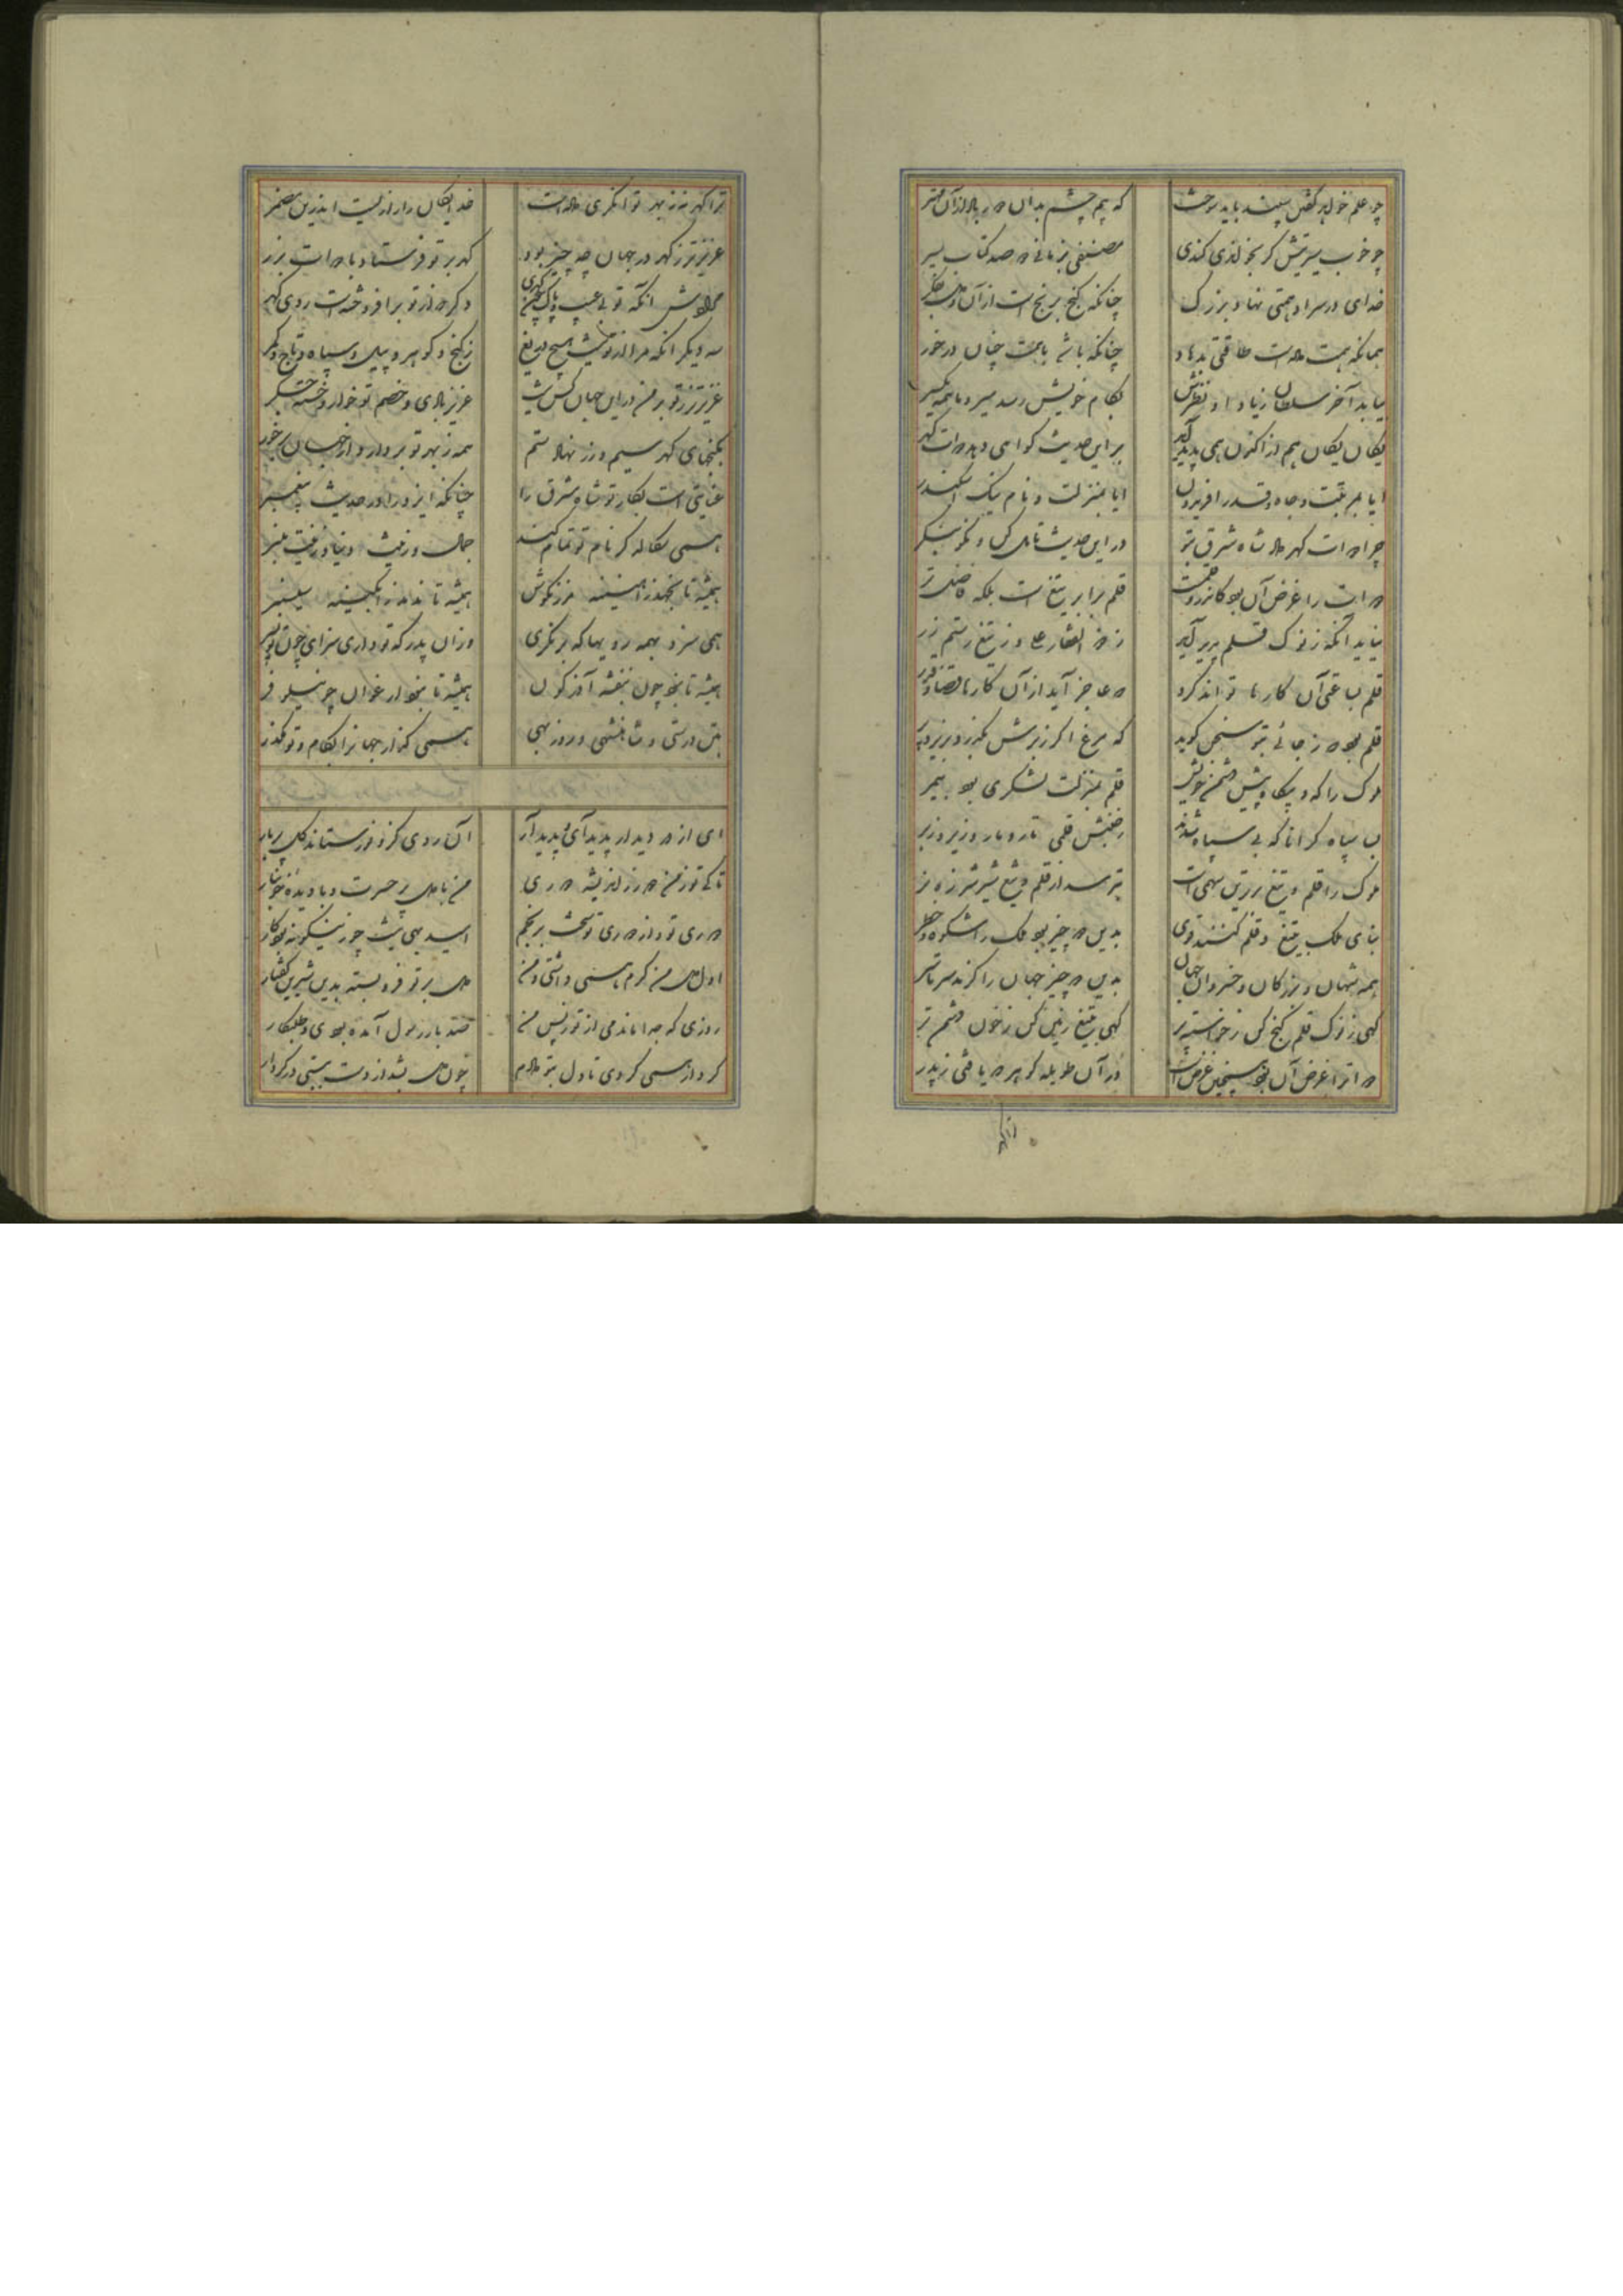 که هم چشم بدان
مصنفی بزمانی دو صد کتاب سیر
خدای در سر او همتی نهاد بزرگ
چنانکه گنج برنج است از آن
چنانکه باشد با همت چنان در خور
بکام خویش رسد میر و ما همه یکسر
یکان یکان هم از اکنون همی پدید آید
بر این حدیث گواهی دهد دوات گهر
ایا بمرتبت و جاه و قدر افریدون
ایا بمنزلت و نام نیک اسکندر
چرا دوات گهر داد شاه شرق بتو
در این حدیث تامل کن و نکو بنگر
دوات را غرض آن بود کاندرو قلمست
قلم برابر تیغ است بلکه فاضلتر
نیاید آنکه ز نوک قلم پدید آید
ز ذوالفقار علی و ز تیغ رستم زر
قلم بساعتی آن کارها تواند کرد
که عاجز آید از آن کارها قضا و قدر
قلم بود که ز جائی بتو سخن گوید
که مرغ اگر ز برش بگذرد بریزد پر
ملوک را گه و بیگاه پیش دشمن خویش
قلم بمنزلت لشکری بود بیمر
بسا سپاه گرانا که بی سپاه شدند
ز جنبش قلمی تار و مار و زیر و زبر
ملوک را قلم و تیغ برترین سپهی است
بترسد از قلم و تیغ شیر شرزه نر
بنای ملک به تیغ و قلم کنند قوی
بدین دو چیز بود ملک را شکوه و خطر
همه شهان و بزرگان و خسروان جهان
بدین دو چیز جهان را گرند سرتاسر
گهی ز نوک قلم گنج کن ز خواسته پر
گهی به تیغ زمین کن ز خون دشمن تر
دوات را غرض آن بود همچنین غرض است
در آن طویله گوهر که یافتی ز پدر
ترا گهر نه ز بهر توانگری داده است
خدایگان را رازیست اندرین مضمر
عزیزتر ز گهر در جهان چه چیز بود
گهر بر تو فرستاد با دوات بزر
مرادش آنکه تو بی عیب و پاک چون گهری
دگر که از تو برافروخته است روی گهر
سه دیگر آنکه مرا از تو نیست هیچ دریغ
ز گنج و گوهر و پیل و سپاه و تاج و کمر
عزیزتر ز تو بر من در این جهان کس نیست
عزیز بادی و خصم تو خوار و خسته جگر
بگنجهای گهر سیم و زر نهادستم
همه ز بهر تو بردار و از جهان برخور
عنایتی است بکار تو شاه مشرق را
چنانکه ایزد را در حدیث پیغمبر
همی سگالد کز نام تو تمام کند
جمال و زینت دنیا و زینت منبر
همیشه تا بچندد
همیشه تا ندهد
همی سزد بهمه رویها که برنگری
وز آن پدر که تو داری سزای چون تو پسر
همیشه تا نبود چون بنفشه آذرگون
همیشه تا نبود ارغوان چو نیلوفر
بتن درستی و شاهنشهی و روزبهی
همی گذار جهان را بکام و تو مگذر
ای از در دیدار پدید آی و پدید آر
آن روی کزو نور ستاند گل بر بار
تا کی تو ز من دور زاندیشه دوری
من با دل پر حسرت و با دیده خونبار
دوری تو و از دوری تو سخت برنجم
امید بهی نیست چو زینگونه بود کار
اول دل من گرم همی داشتی و من
دل بر تو فرو بسته بدین شیرین گفتار
روزی که جدا ماندمی از تو ز پس من
صد بار رسول آمده بودی و طلبکار
کردار همی کردی تا دل بتو دادم
چون دل بشد از دست ببستی در کردار